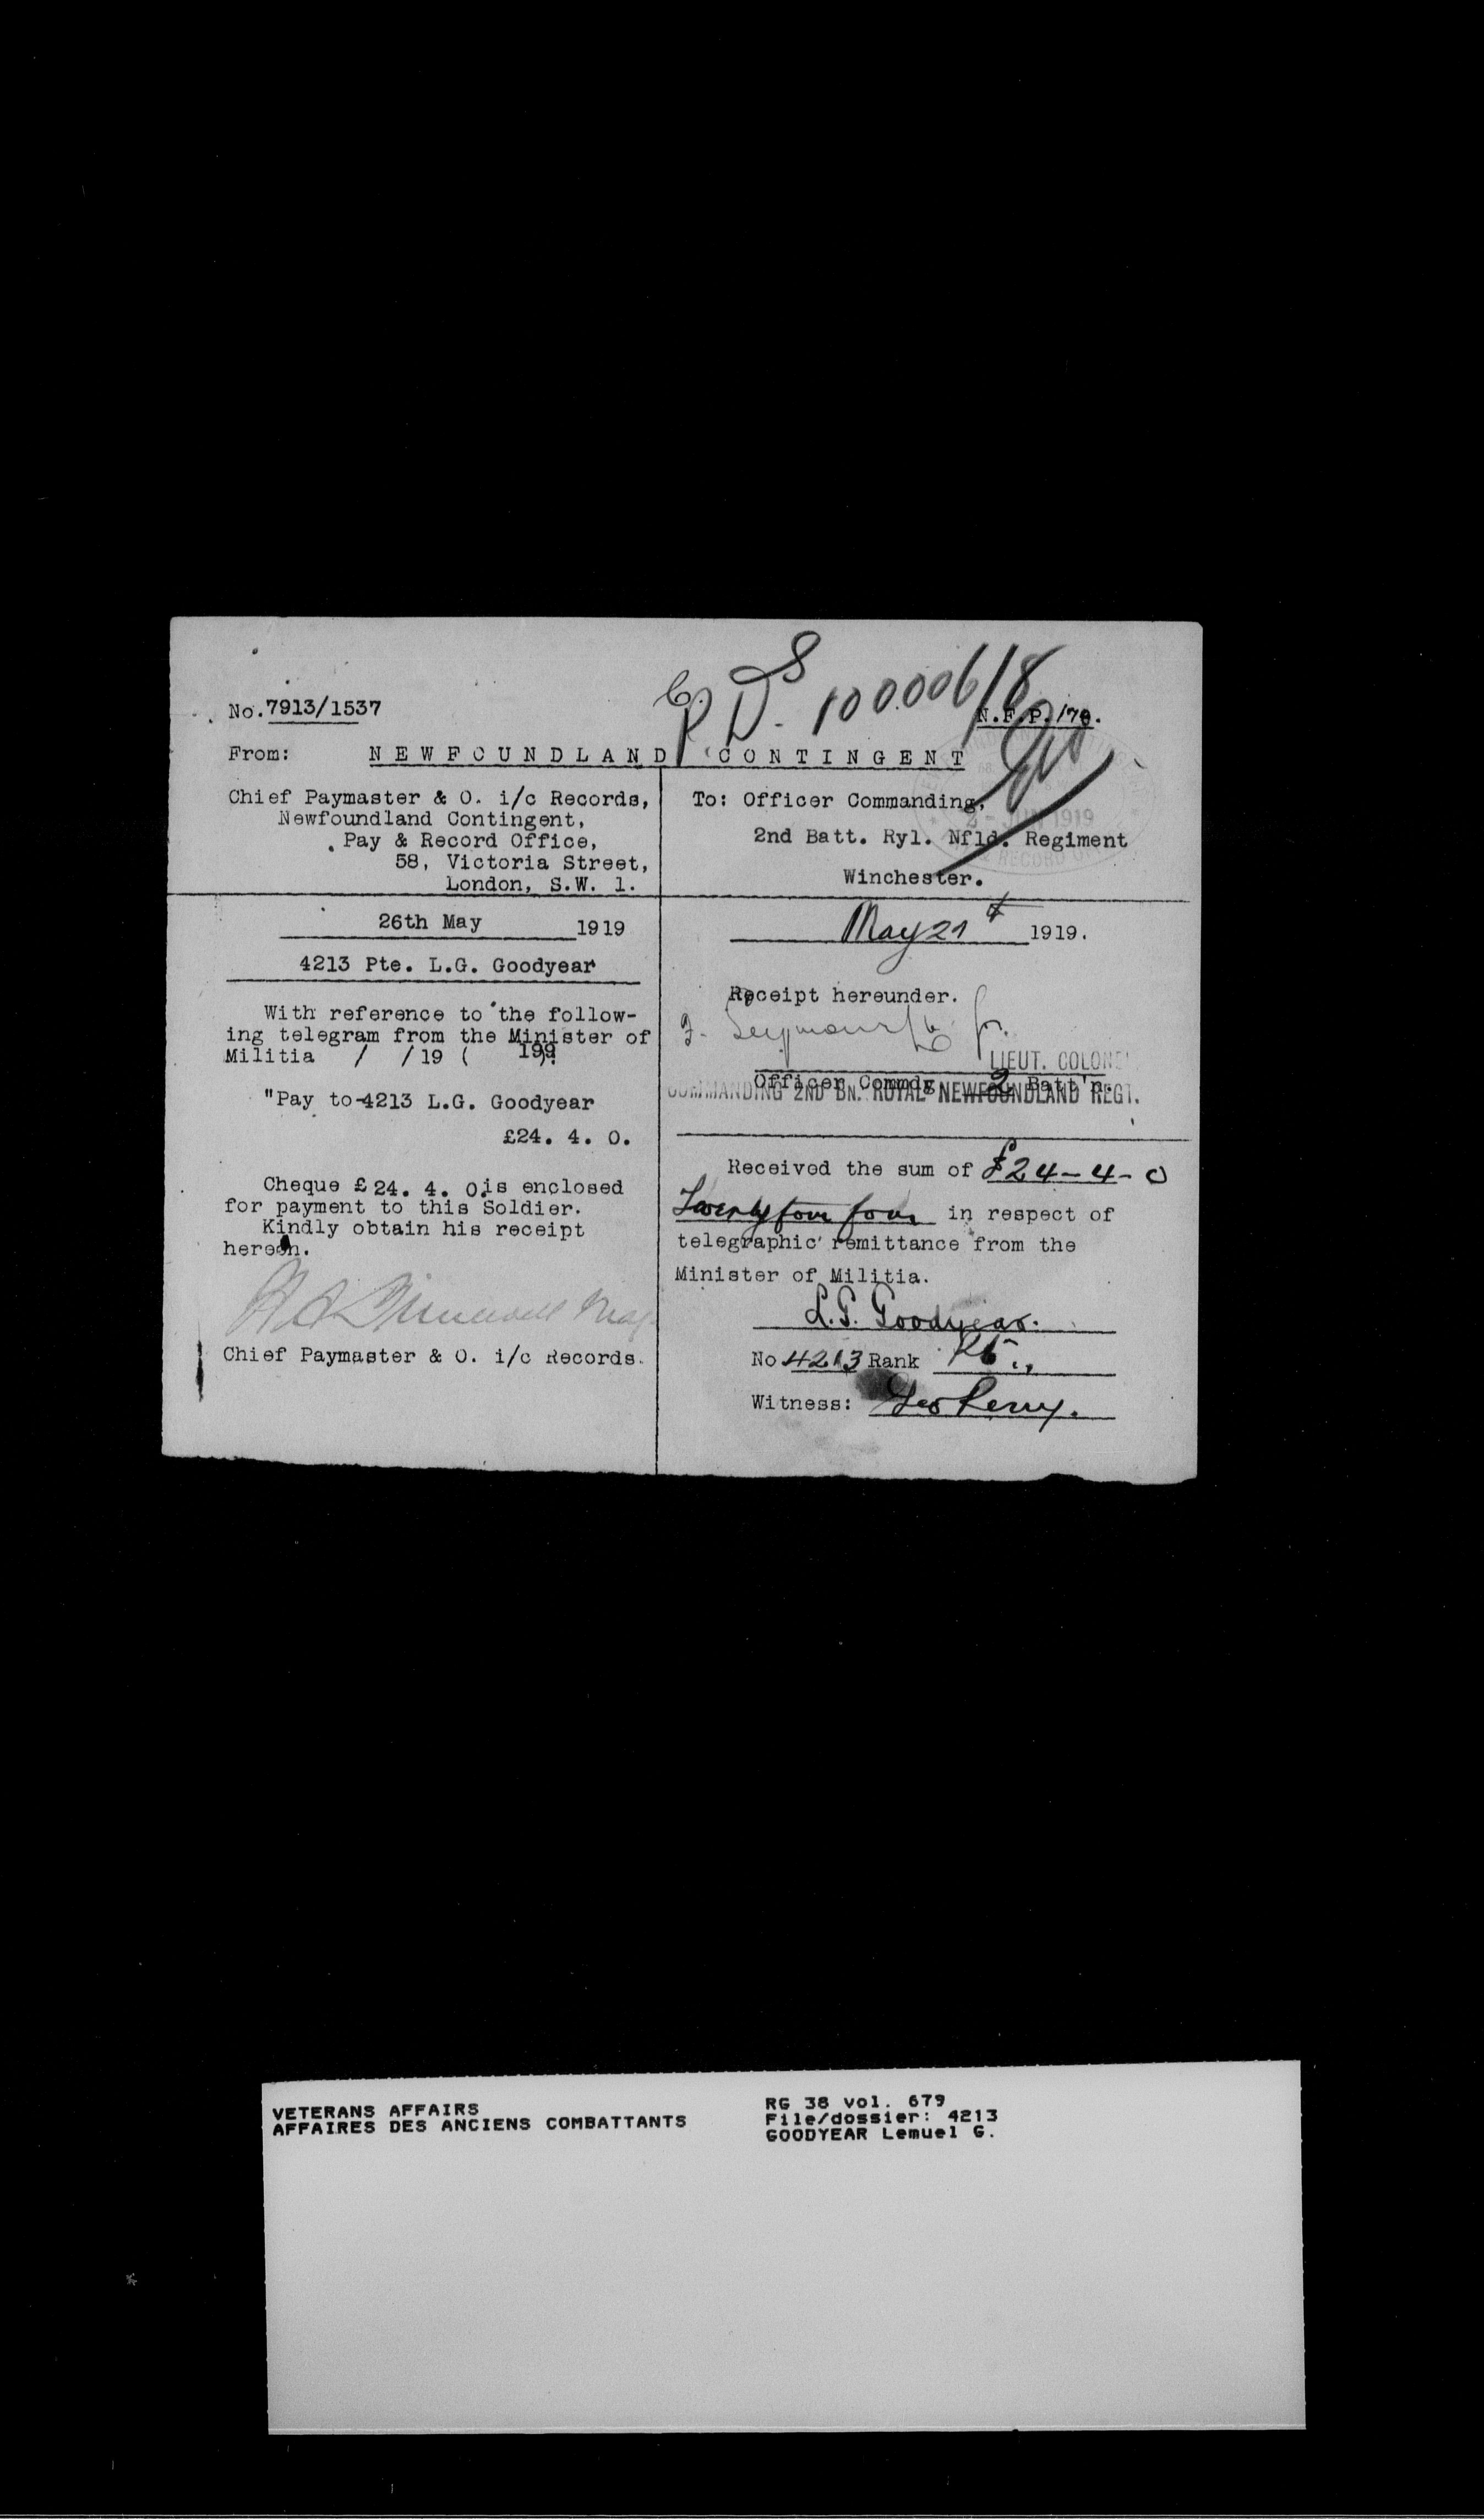 No. 7913/1537
N.F.P./79.
From: NEWFOUNDLAND CONTINGENT
Chief Paymaster & O. i/c Records,
Newfoundland Contingent,
Pay & Record Office,
58, Victoria Street,
London, S.W. 1.
26th May 1919
4213 Pte. L.G. Goodyear
With reference to the follow-
ing telegram from the Minister of
Militia / /19 ( 199):
"Pay to-4213 L.G. Goodyear
£24. 4. 0.
Cheque £24. 4. 0. is enclosed
for payment to this Soldier.
Kindly obtain his receipt
hereon.
Chief Paymaster & O. i/c Records.
To: Officer Commanding,
2nd Batt. Ryl. Nfld. Regiment
Winchester.
2 - JUN 1919
May 1919.
Receipt hereunder.
LIEUT. COLONEL
Officer Commdg 2 Batt'n.
COMMANDING 2ND BN. ROYAL NEWFOUNDLAND REGT.
Received the sum of £24-4-0
Twenty four four in respect of
telegraphic remittance from the
Minister of Militia.
L.G. Goodyear.
No 4213 Rank Pte.,
Witness: Geo Perry.
VETERANS AFFAIRS
AFFAIRES DES ANCIENS COMBATTANTS
RG 38 vol. 679
File/dossier: 4213
GOODYEAR Lemuel G.